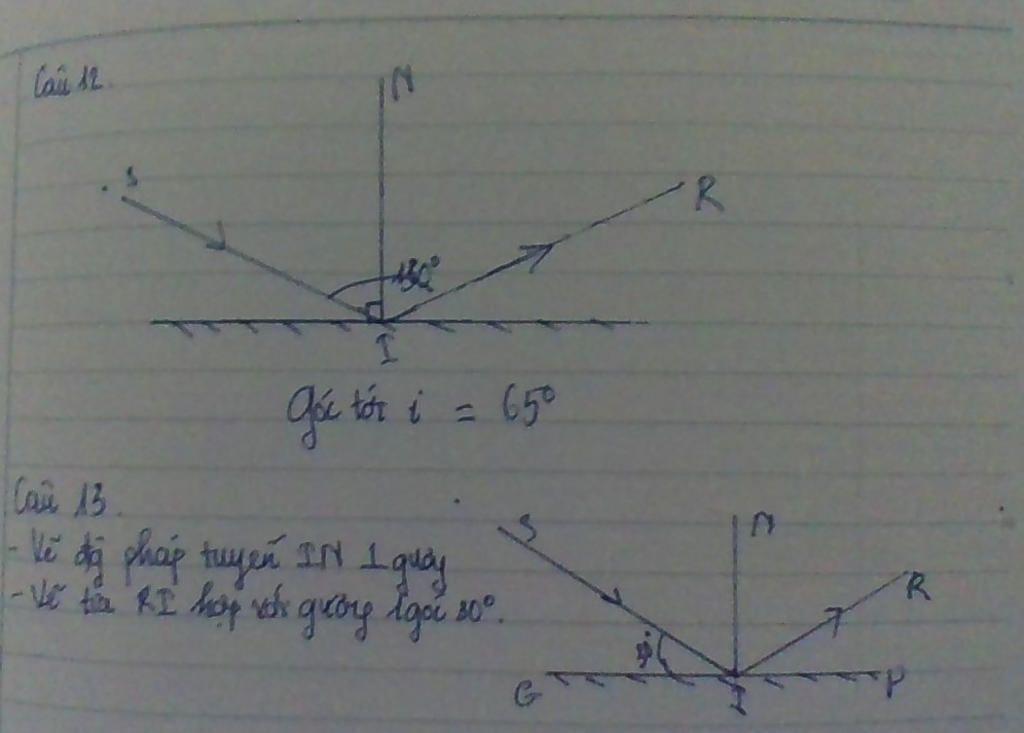 Câu 12.
N
S
R
130°
I
Góc tới i = 65°
Câu 13.
- Vẽ đg pháp tuyến IN ⊥ gương
- Vẽ tia RI hợp với gương 1 góc 30°.
S
N
R
G
I
P